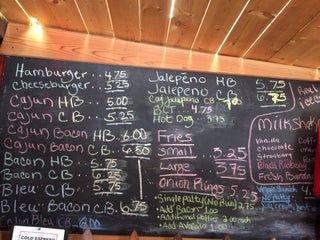 Hamburger... 4.75
Cheeseburger... 5.25
Cajun HB... 5.00
Cajun CB.. 5.25
Cajun Bacon HB.. 6.00
Cajun Bacon CB.. 6.50
Bacon HB... 5.75
Bacon CB... 6.25
Bleu CB.. 5.75
Bleu Bacon CB.. 6.75
Cajun Bleu CB..
Jalepeño HB 5.75
Jalepeño CB
BLT 4.75
Hot Dog... 3.75
Fries
small... 3.25
Large... 3.75
Onion Rings 5.25
Single patty (No Bun) 2.75
Add Bacon 1.00
Additional patties 2.00 each
Add Avocado 1.00
Real
Milksha
Vanilla
chocolate
Strawberry
Fresh Banana
COLD ESPRESSO